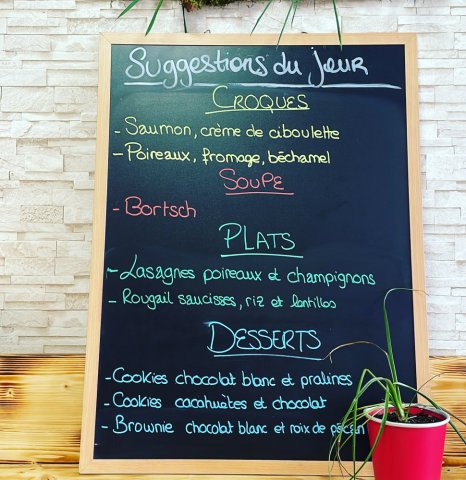 Suggestions du jour
CROQUES
- Saumon, crème de ciboulette
- Poireaux, fromage, béchamel
SOUPE
- Bortsch
PLATS
- Lasagnes poireaux et champignons
- Rougail saucisses, riz et lentilles
DESSERTS
- Cookies chocolat blanc et pralines
- Cookies cacahuètes et chocolat
- Brownie chocolat blanc et noix de pécan